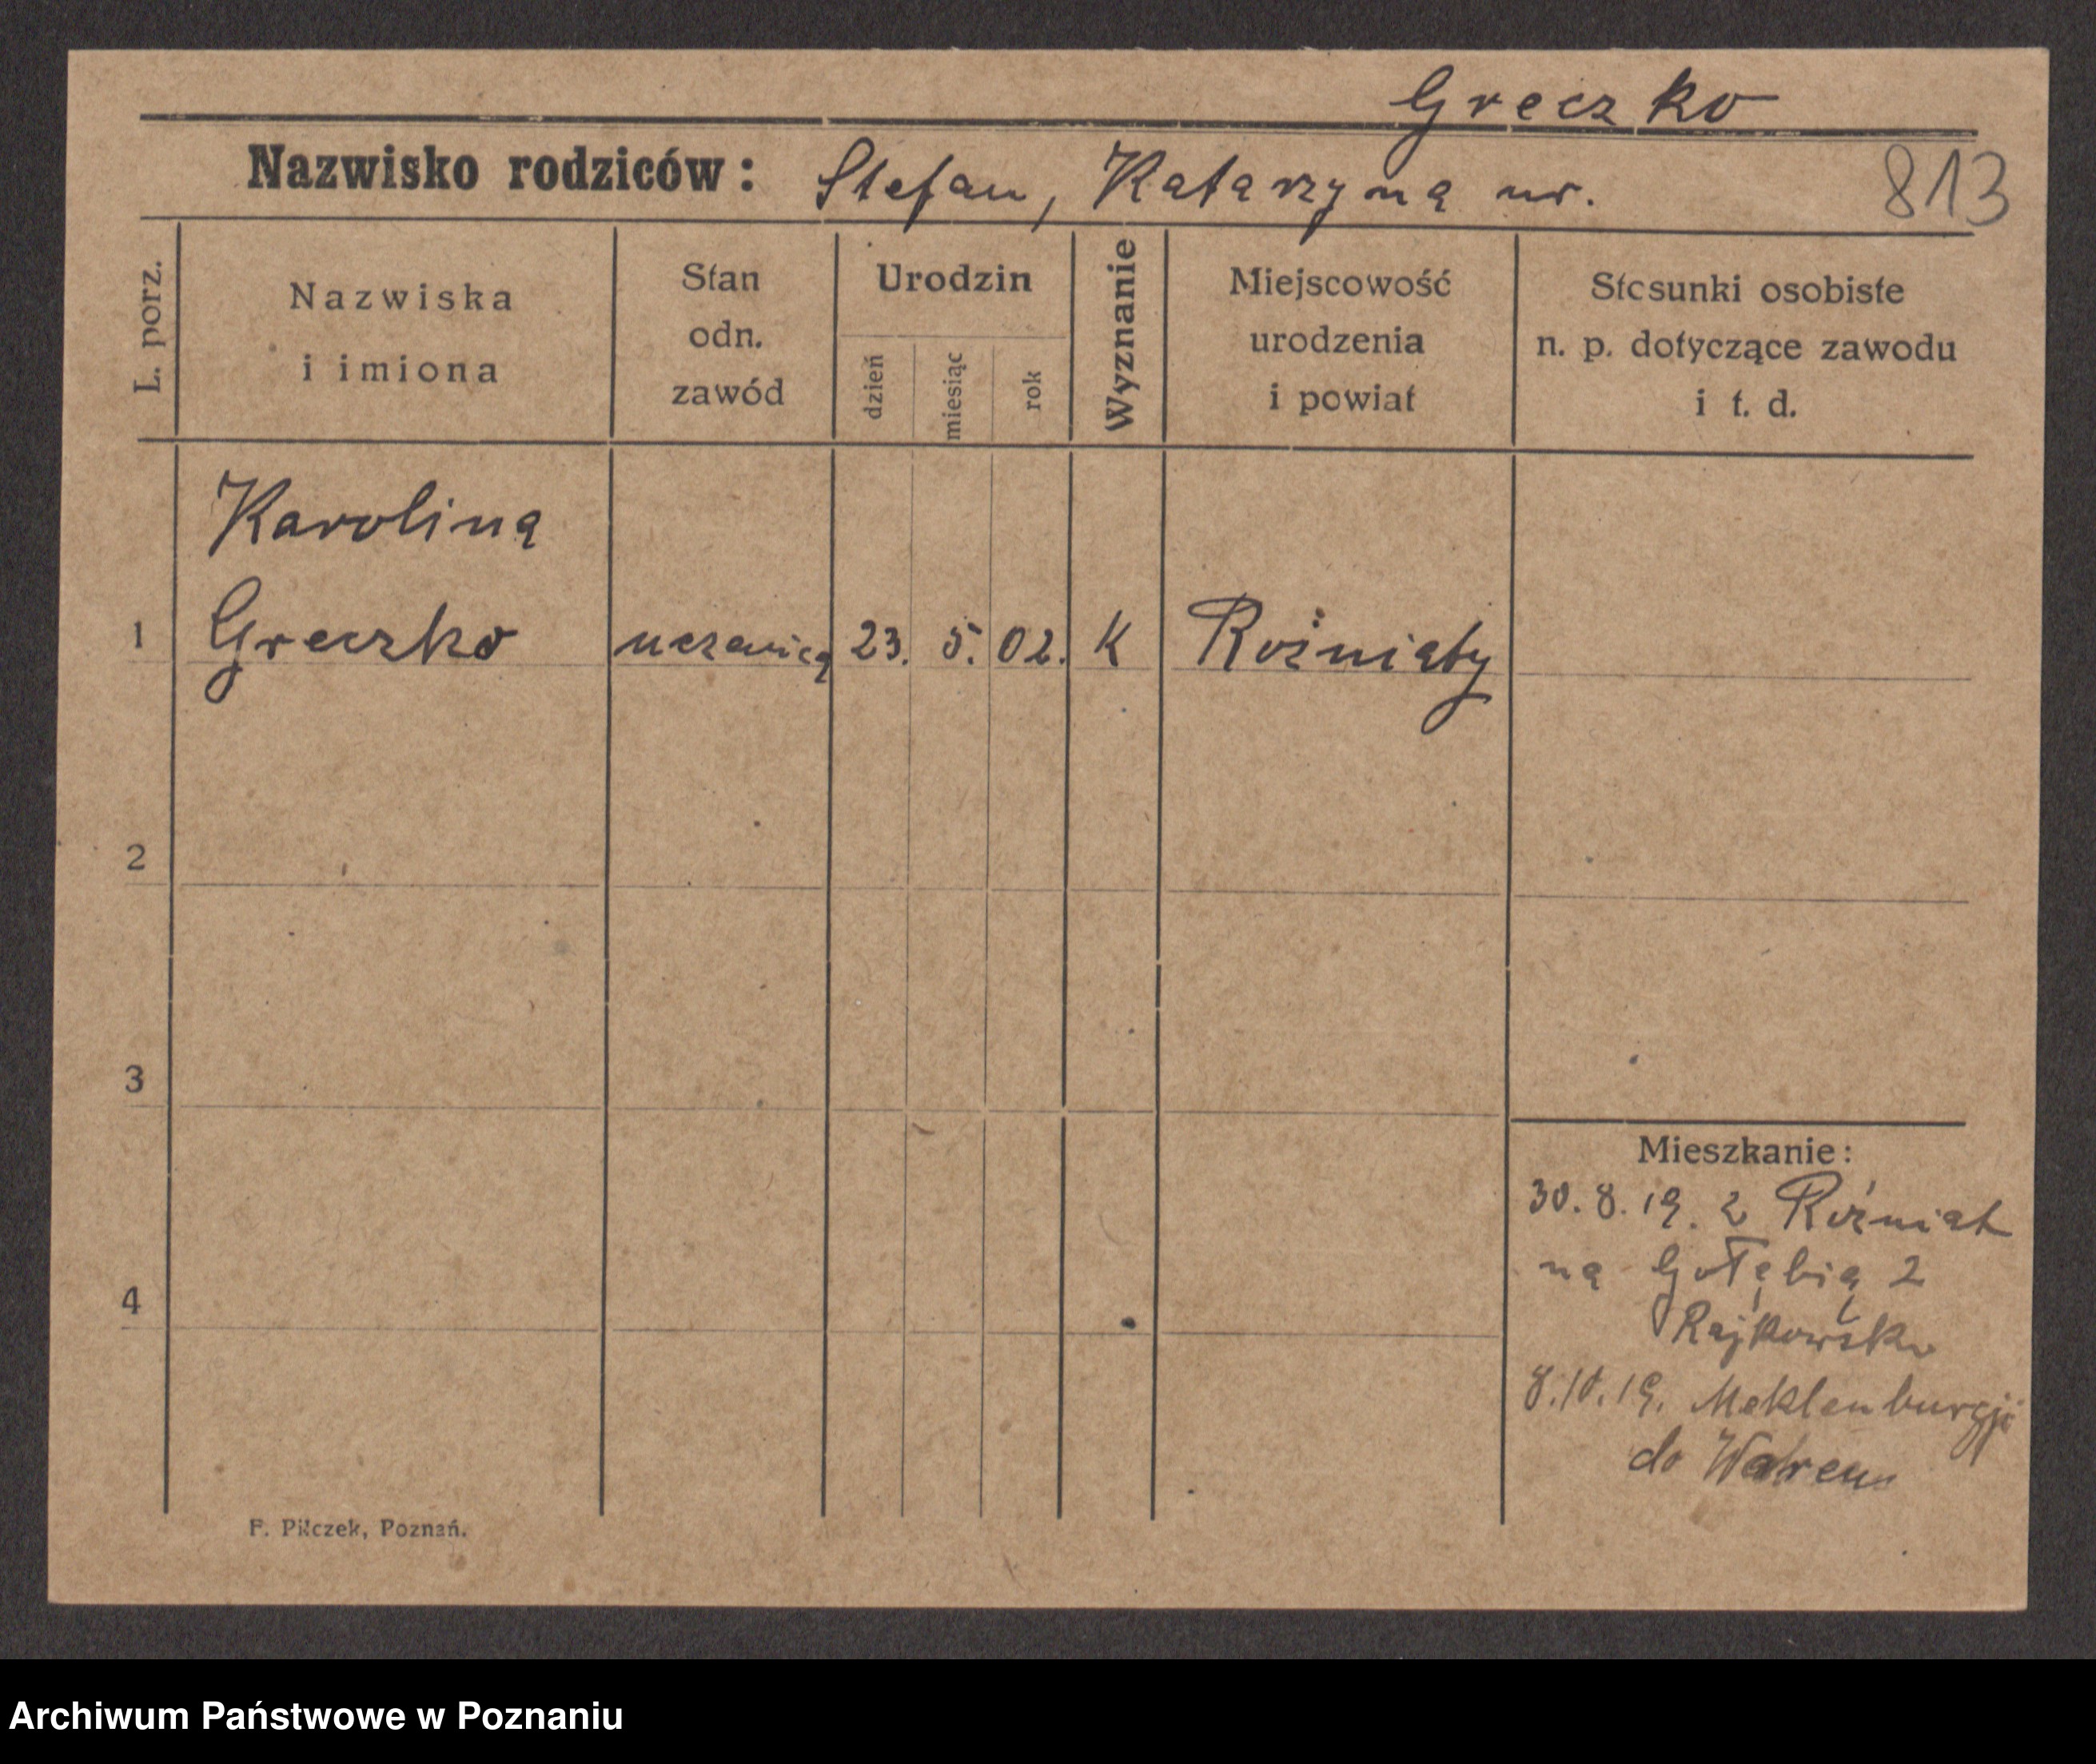 Greczko
Nazwisko rodziców: Stefan, Katarzyna ur.
813
L. porz.
Nazwiska
i imiona
Stan
odn.
zawód
Urodzin
dzień
miesiąc
rok
Wyznanie
Miejscowość
urodzenia
i powiat
Stosunki osobiste
n. p. dotyczące zawodu
i t. d.
Karolina
1 Greczko uczenica 23. 5. 02. K Rożniaty
2
3
4
Mieszkanie:
30. 8. 19. z Rożniat
na Gołębia 2
Rajkowska
8. 10. 19. Meklenburgji
do Waren
F. Pilczek, Poznań.
Archiwum Państwowe w Poznaniu